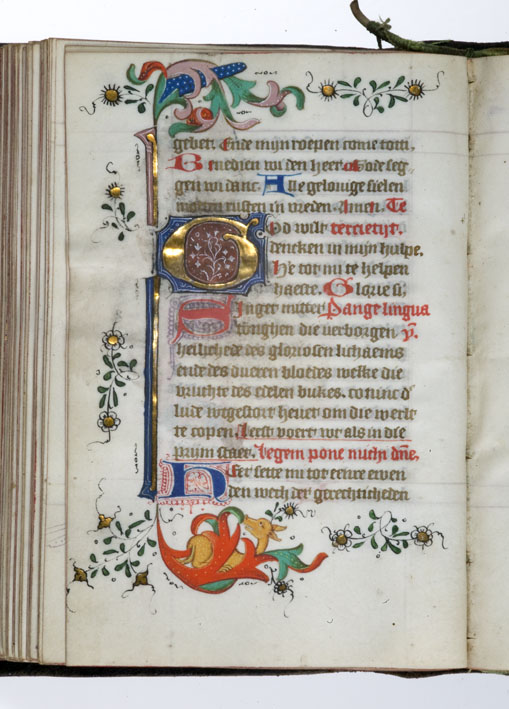 gebet. Ende mijn roepen come toti.
Benedien wi den heer. Gode seg
gen wi danc. Alle gelouige sielen
moeten rusten in vreden. Amen. Te
God wilt terciетijt.
dencken in mijn hulpe.
He tot mi te helpen
haeste. Glorie si;
Singet mitter Pange lingua
tonghen die verborgen
heilichede des gloriosen lichaems
ende des dueren bloedes welke die
vrucht des edelen bukes. coninc d'
lude wtgestort heuet om die werlt
te copen. Eerst voert wr als in die
prijm staet. Legem pone michi dne,
Heer sette mi tot eenre ewen
den wech der gerechticheden